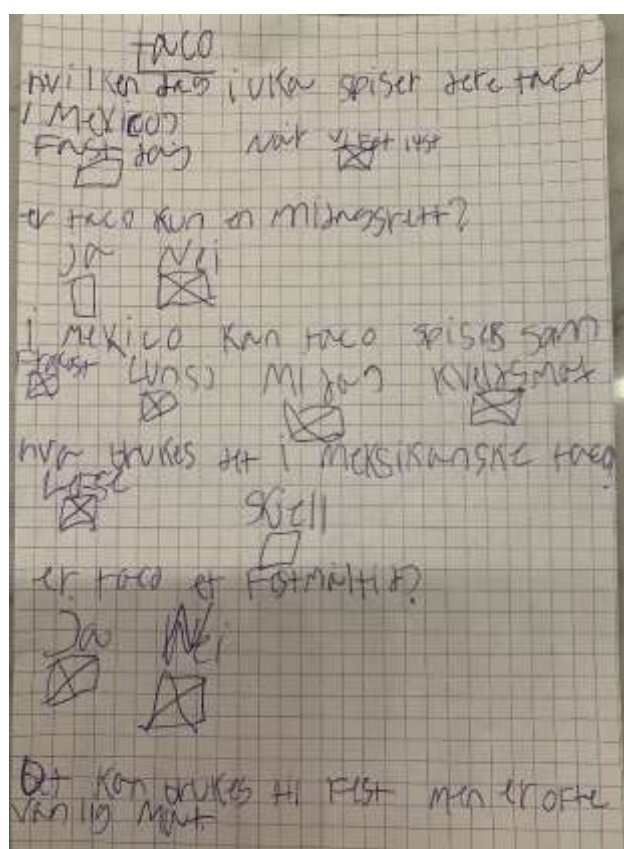 taco
hvilken dag i uka spiser dere taco
i Mexico?
Fast dag når vi Får lyst
er taco kun en middagsrett?
Ja Nei
i Mexico kan taco spises som
Frokost Lunsj Middag kveldsmat
hva brukes det i meksikanske taco?
Lefse
Skjell
er taco et Festmåltid?
Ja Nei
Det kan brukes til Fest men er ofte
vanlig mat.